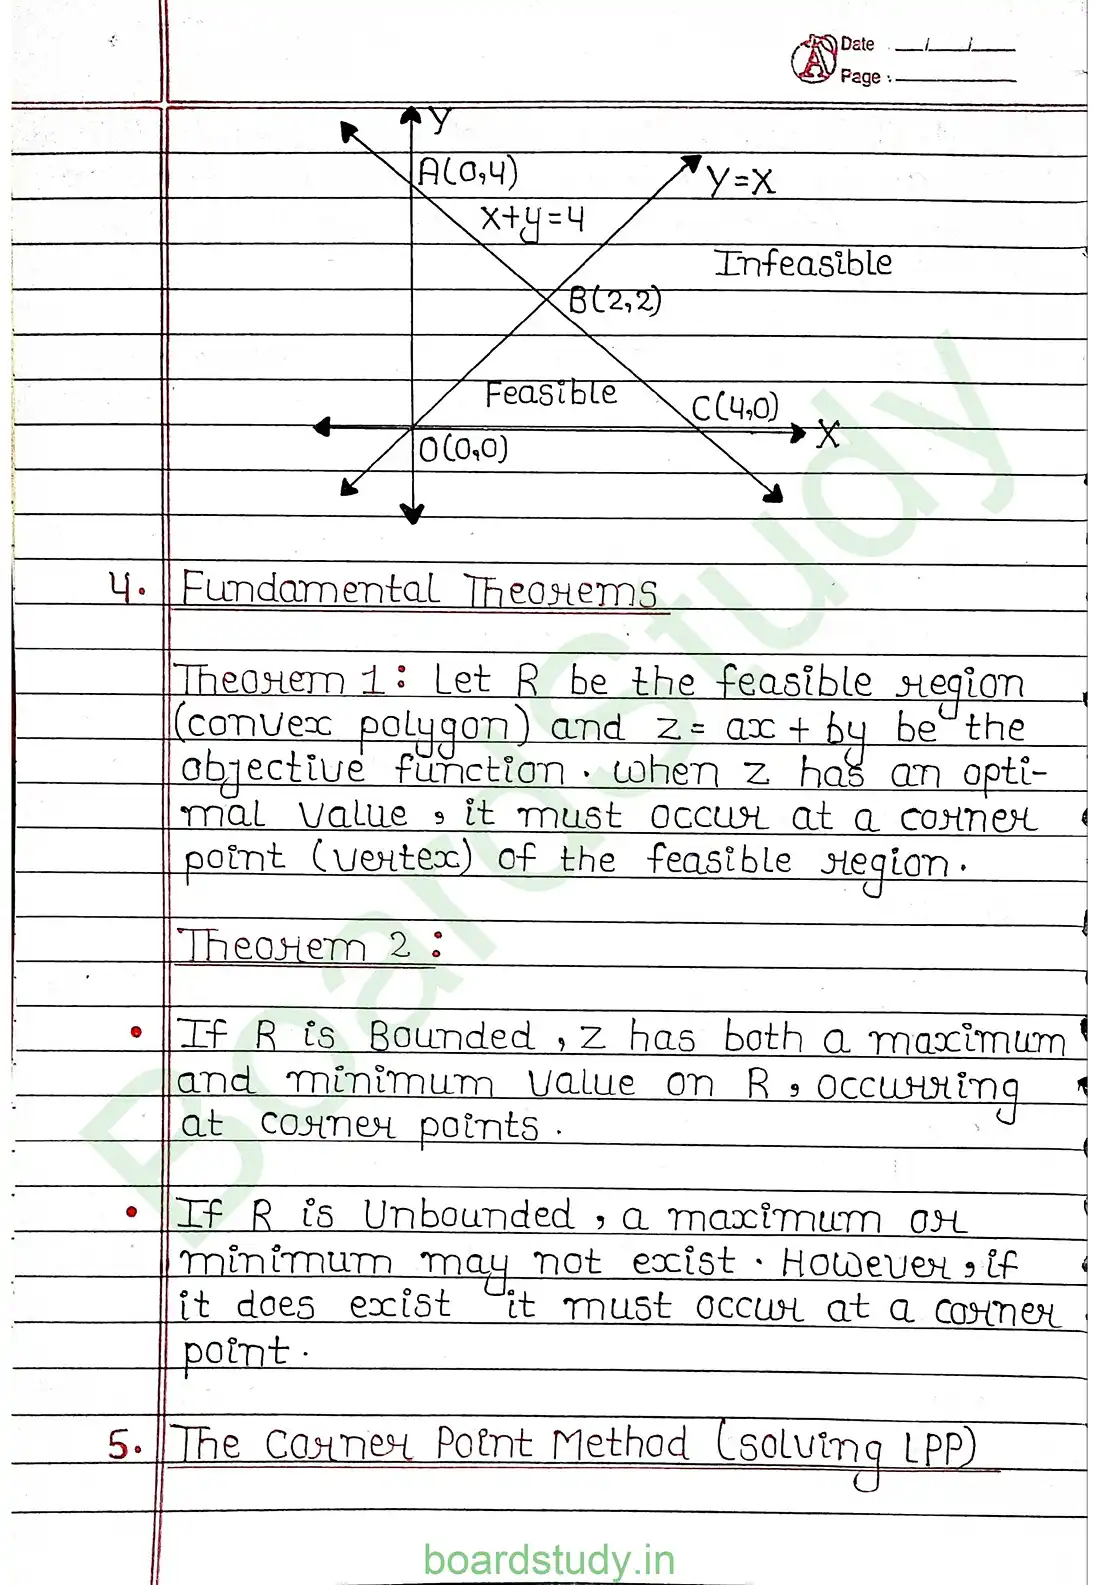 Date __/__/__
Page : ______
Y
A(0,4)
Y=X
x+y=4
Infeasible
B(2,2)
Feasible
C(4,0)
X
O(0,0)
4. Fundamental Theorems
Theorem 1: Let R be the feasible region
(convex polygon) and z = ax + by be the
objective function. When z has an opti-
mal value, it must occur at a corner
point (vertex) of the feasible region.
Theorem 2:
• If R is Bounded, z has both a maximum
and minimum value on R, occurring
at corner points.
• If R is Unbounded, a maximum or
minimum may not exist. However, if
it does exist it must occur at a corner
point.
5. The Corner Point Method (solving LPP)
BoardStudy
boardstudy.in